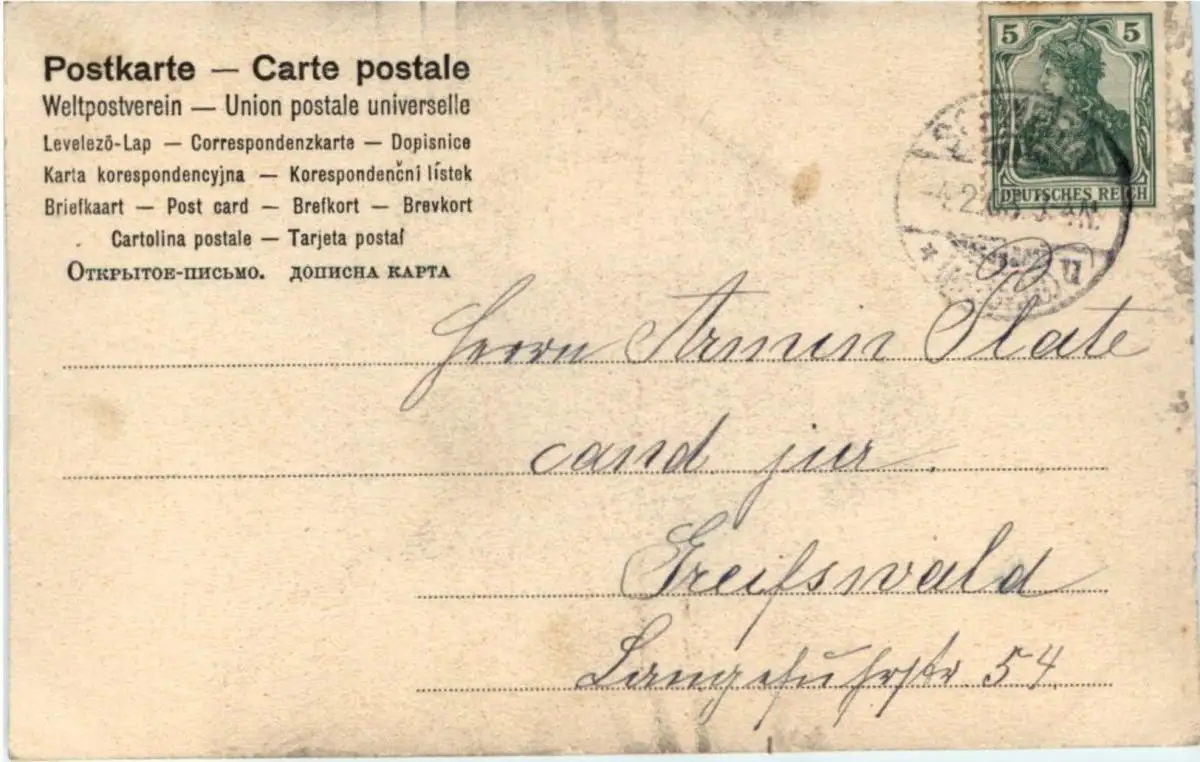 Postkarte — Carte postale
Weltpostverein — Union postale universelle
Levelező-Lap — Correspondenzkarte — Dopisnice
Karta korespondencyjna — Korespondenční lístek
Briefkaart — Post card — Brefkort — Brevkort
Cartolina postale — Tarjeta postal
Открытое-письмо. дописна карта
5 5
DEUTSCHES REICH
Herrn Armin Plate
cand jur.
Greifswald
Langefuhrstr. 54